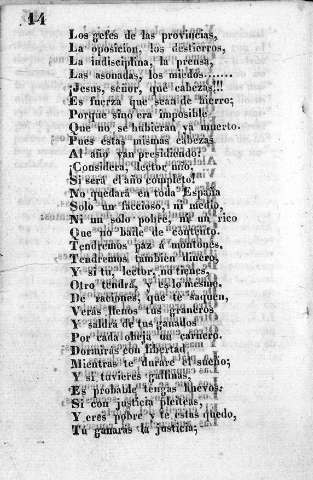 14
Los gefes de las provincias,
La oposicion, los destierros,
La indisciplina, la prensa,
Las asonadas, los miedos.......
¡Jesus, señor, que cabezas!!!
Es fuerza que sean de hierro;
Porque sino era imposible
Que no se hubieran ya muerto.
Pues estas mismas cabezas
Al año van presidiendo:
¡Considera, lector mio,
Si será el año completo!
No quedará en toda España
Solo un faccioso, ni medio,
Ni un solo pobre, ni un rico
Que no baile de contento.
Tendremos paz á montones,
Tendremos tambien dinero,
Y si tu, lector, no tienes,
Otro tendrá, y es lo mesmo.
De raciones, que te saquen,
Verás llenos tus graneros
Y saldrá de tus ganados
Por cada obeja un carnero.
Dormirás con libertad
Mientras te durare el sueño;
Y si tuvieres gallinas,
Es probable tengas huevos.
Si con justicia pleiteas,
Y eres pobre y te estás quedo,
Tú ganarás la justicia;